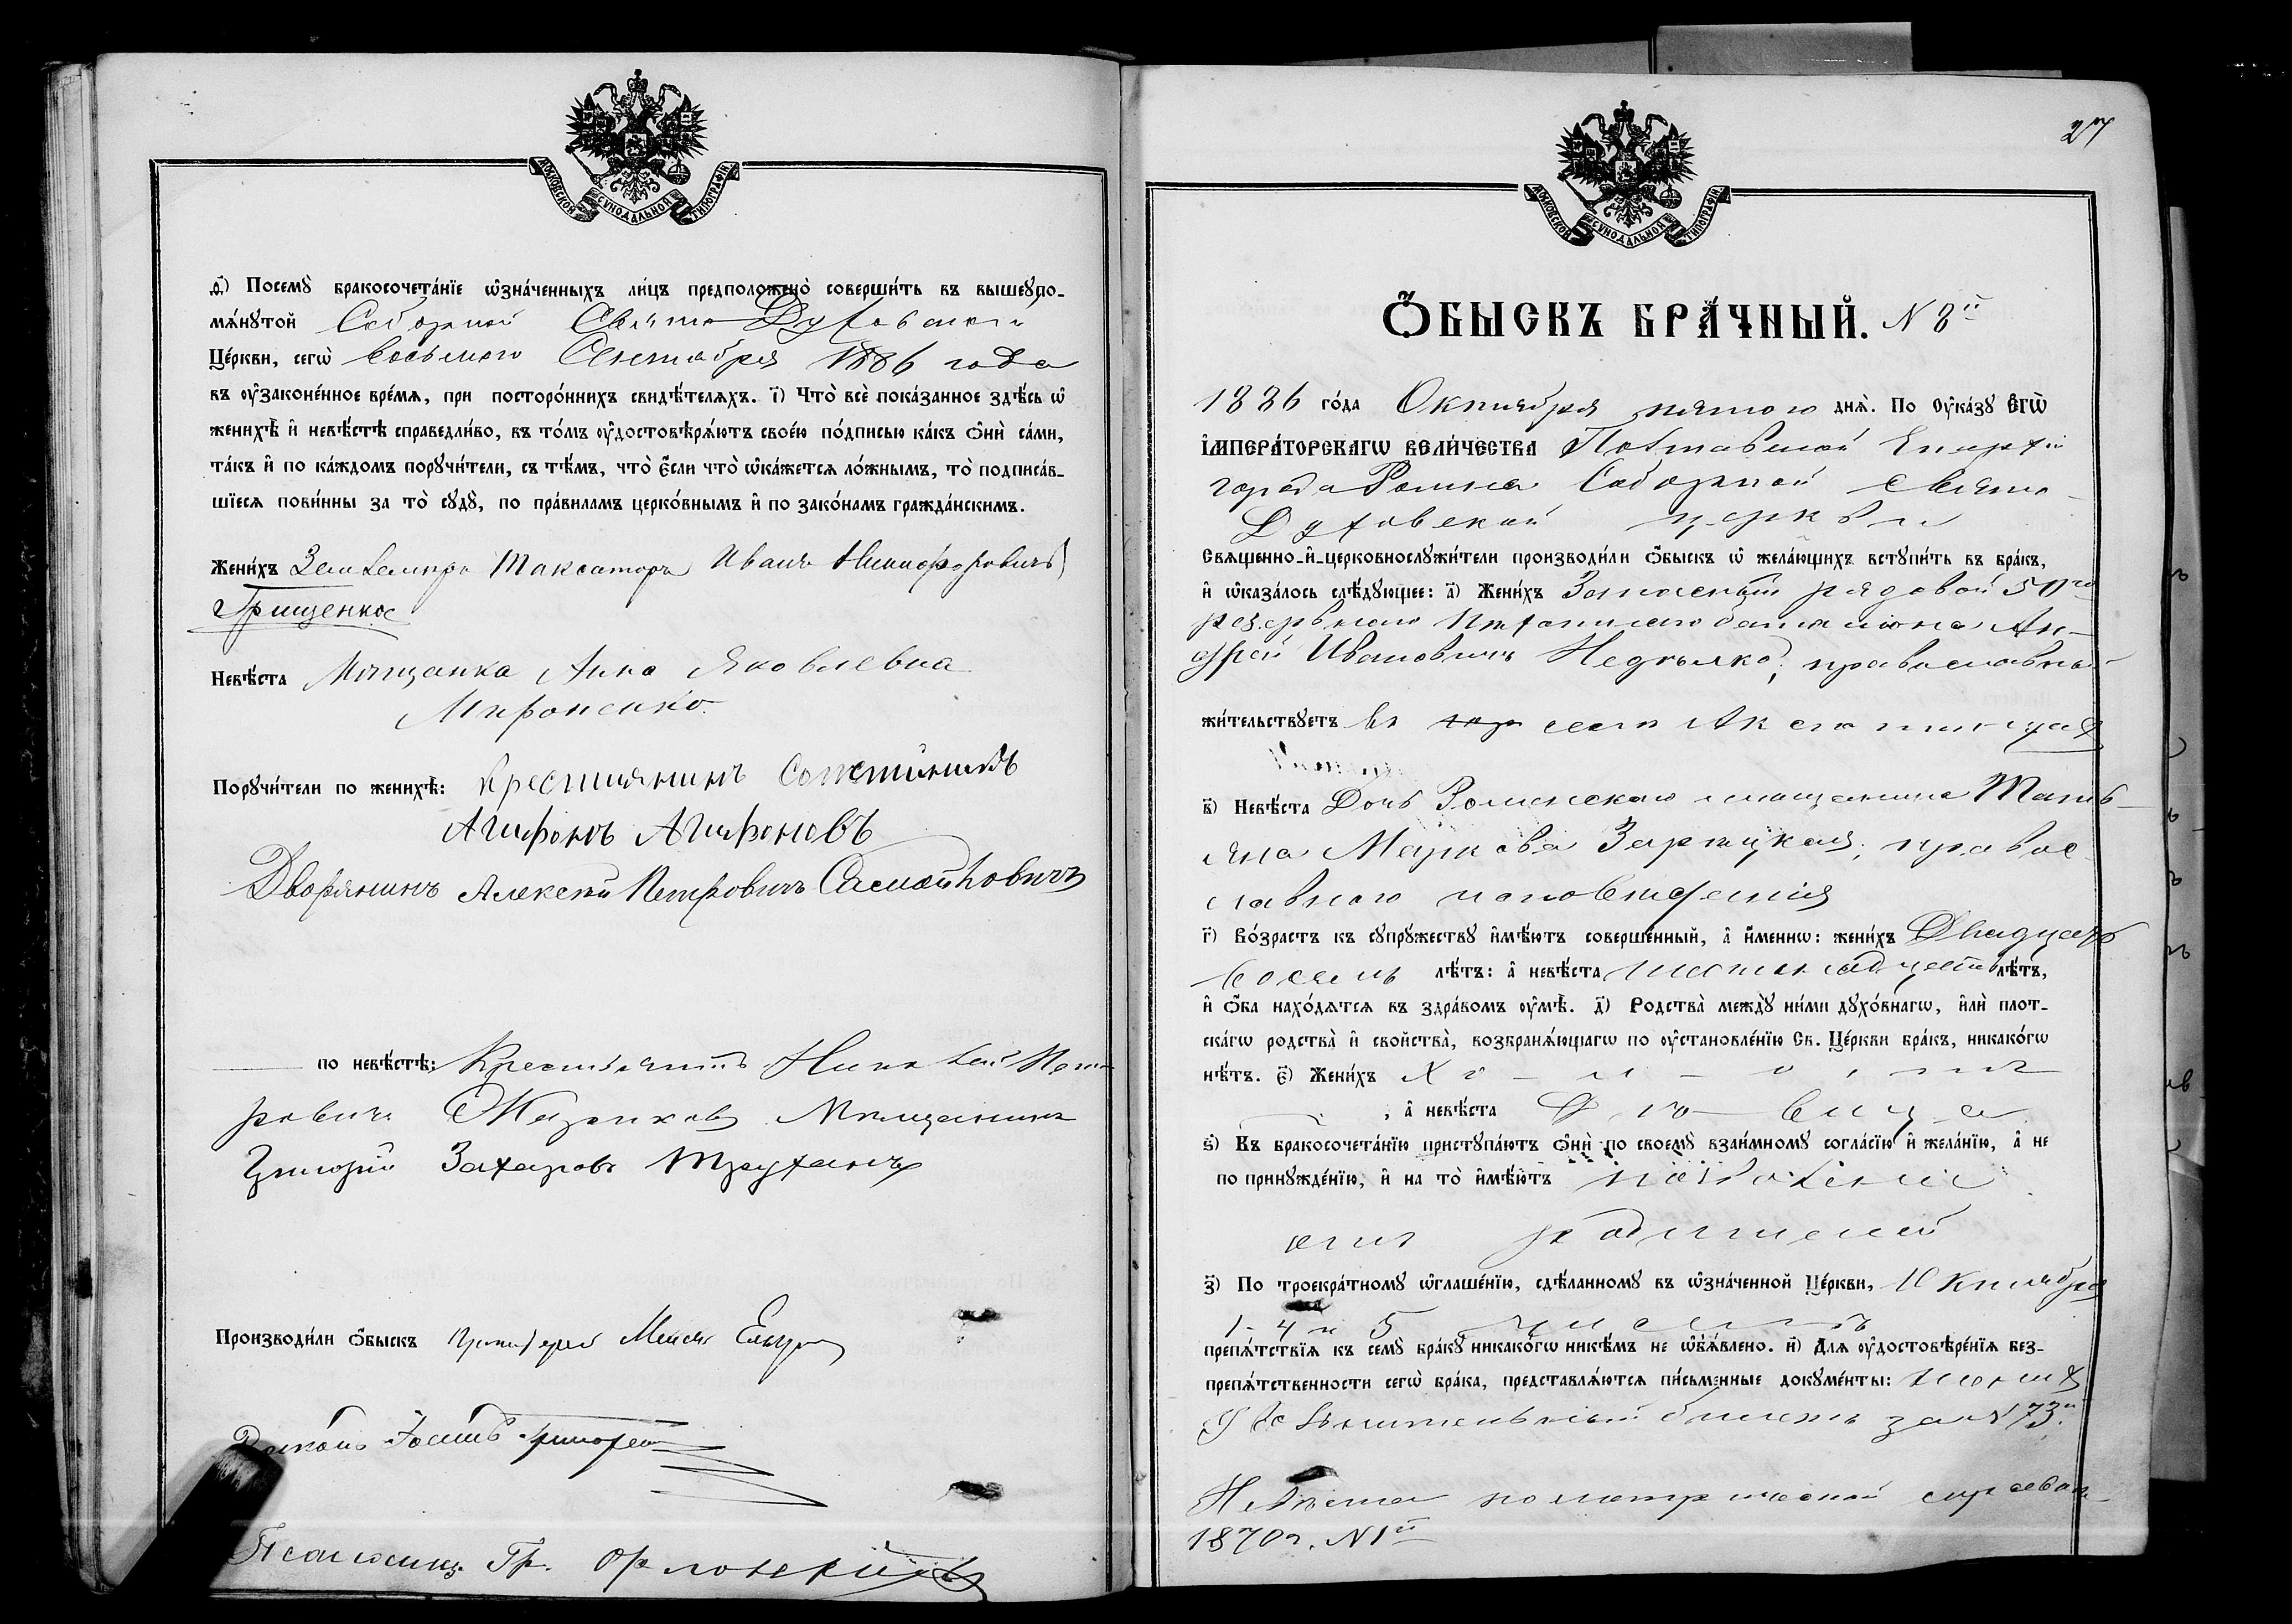 МОСКОВСКОЙ СУНОДАЛЬНОЙ ТИПОГРАФІИ.
д҃) Посемꙋ̀ бракосочета́нїе ѡ҆зна́ченныхъ ли́цъ предположено̀ соверши́ть въ вышеꙋпо-
мѧ́нꙋтой Соборной Свято-Духовской
Це́ркви, сегѡ̀ восьмого Сентября 1886 года
въ ᲂу҆зако́ненное вре́мѧ, при посторо́ннихъ свидѣ́телѧхъ. і҃) Что̀ всѐ пока́занное здѣ́сь ѡ҆
женихѣ̀ и҆ невѣ́стѣ справедли́во, въ то́мъ ᲂу҆достовѣрѧ́ютъ свое́ю по́дписью ка́къ ѻ҆нѝ са́ми,
та́къ и҆ по ка́ждомъ порꙋчи́тели, съ тѣ́мъ, что̀ є҆́сли что̀ ѡ҆ка́жетсѧ ло́жнымъ, то̀ подписа́в-
шїесѧ пови́нны за то̀ сꙋдꙋ̀, по пра́виламъ церко́внымъ и҆ по зако́намъ гражда́нскимъ.
Жени́хъ Землемеръ Таксаторъ Иванъ Никифоровичъ
Грищенко
Невѣ́ста Мѣщанка Анна Яковлевна
Мироненко.
Порꙋчи́тели по женихѣ̀: Крестиянинъ
Агафонъ Агафоновъ
Дворянинъ Алексей Петровичъ Самойловичъ
по невѣ́стѣ: Крестьянинъ Николай Пет-
ровичъ Мѣщанинъ
Григорій Захаровъ Труханъ
Производи́ли ѻ҆́быскъ Протоіерей
Діаконъ
Псаломщ. Гр. Орловскій
27
МОСКОВСКОЙ СУНОДАЛЬНОЙ ТИПОГРАФІИ.
Ѻ҆́БЫСКЪ БРА́ЧНЫЙ. N 8й
1886 го́да Октября пятого днѧ̀. По ᲂу҆ка́зꙋ Є҆ГѠ̀
І҆МПЕРА́ТОРСКАГѠ ВЕЛИ́ЧЕСТВА Полтавской Епархіи
города Ромна Соборной Свято-
Духовской церкви
Свѧще́нно-и҆-церковнослꙋжи́тели производи́ли ѻ҆́быскъ ѡ҆ жела́ющихъ встꙋпи́ть въ бра́къ,
и҆ ѡ҆каза́лось слѣ́дꙋющее: а҃) Жени́хъ Запасный рядовой 50го
резервнаго пѣхотнаго баталіона Ан-
дрей Ивановичъ Недѣлько, православный
жи́тельствꙋетъ въ селѣ Аксютинцахъ
в҃) Невѣ́ста Дочь Роменскаго мѣщанина Тать-
яна Маркова Зарицкая, правос-
лавного исповѣданія
г҃) Во́зрастъ къ сꙋпрꙋ́жествꙋ и҆мѣ́ютъ соверше́нный, а҆ и҆́меннѡ: жени́хъ Двадцать
восемь лѣ́тъ: а҆ невѣ́ста шестнадцать лѣ́тъ,
и҆ ѻ҆́ба нахо́дѧтсѧ въ здра́вомъ ᲂу҆мѣ̀. д҃) Родства̀ междꙋ̀ ни́ми дꙋхо́внагѡ, и҆лѝ плот-
ска́гѡ родства̀ и҆ свойства̀, возбранѧ́ющагѡ по ᲂу҆становле́нїю Св. Це́ркви бра́къ, никако́гѡ
нѣ́тъ. є҃) Жени́хъ Холостъ
, а҆ невѣ́ста Девица
ѕ҃) Къ бракосочета́нїю пристꙋпа́ютъ ѻ҆нѝ по своемꙋ̀ взаи́мномꙋ согла́сїю и҆ жела́нїю, а҆ не
по принꙋжде́нїю, и҆ на то̀ и҆мѣ́ютъ позволеніе
родителей
з҃) По троекра́тномꙋ ѡ҆глаше́нїю, сдѣ́ланномꙋ въ ѡ҆зна́ченной Це́ркви, Октября
1-4 и 5 числъ
препѧ́тствїѧ къ семꙋ̀ бра́кꙋ никако́гѡ никѣ́мъ не ѡ҆б̾ѧ́влено. и҃) Длѧ ᲂу҆достовѣре́нїѧ без-
препѧ́тственности сегѡ̀ бра́ка, представлѧ́ютсѧ пи́сьменные докꙋме́нты: Жених
Увольнительный билетъ за N 73й
Невѣста по метрической справкѣ
1870г. N 1й